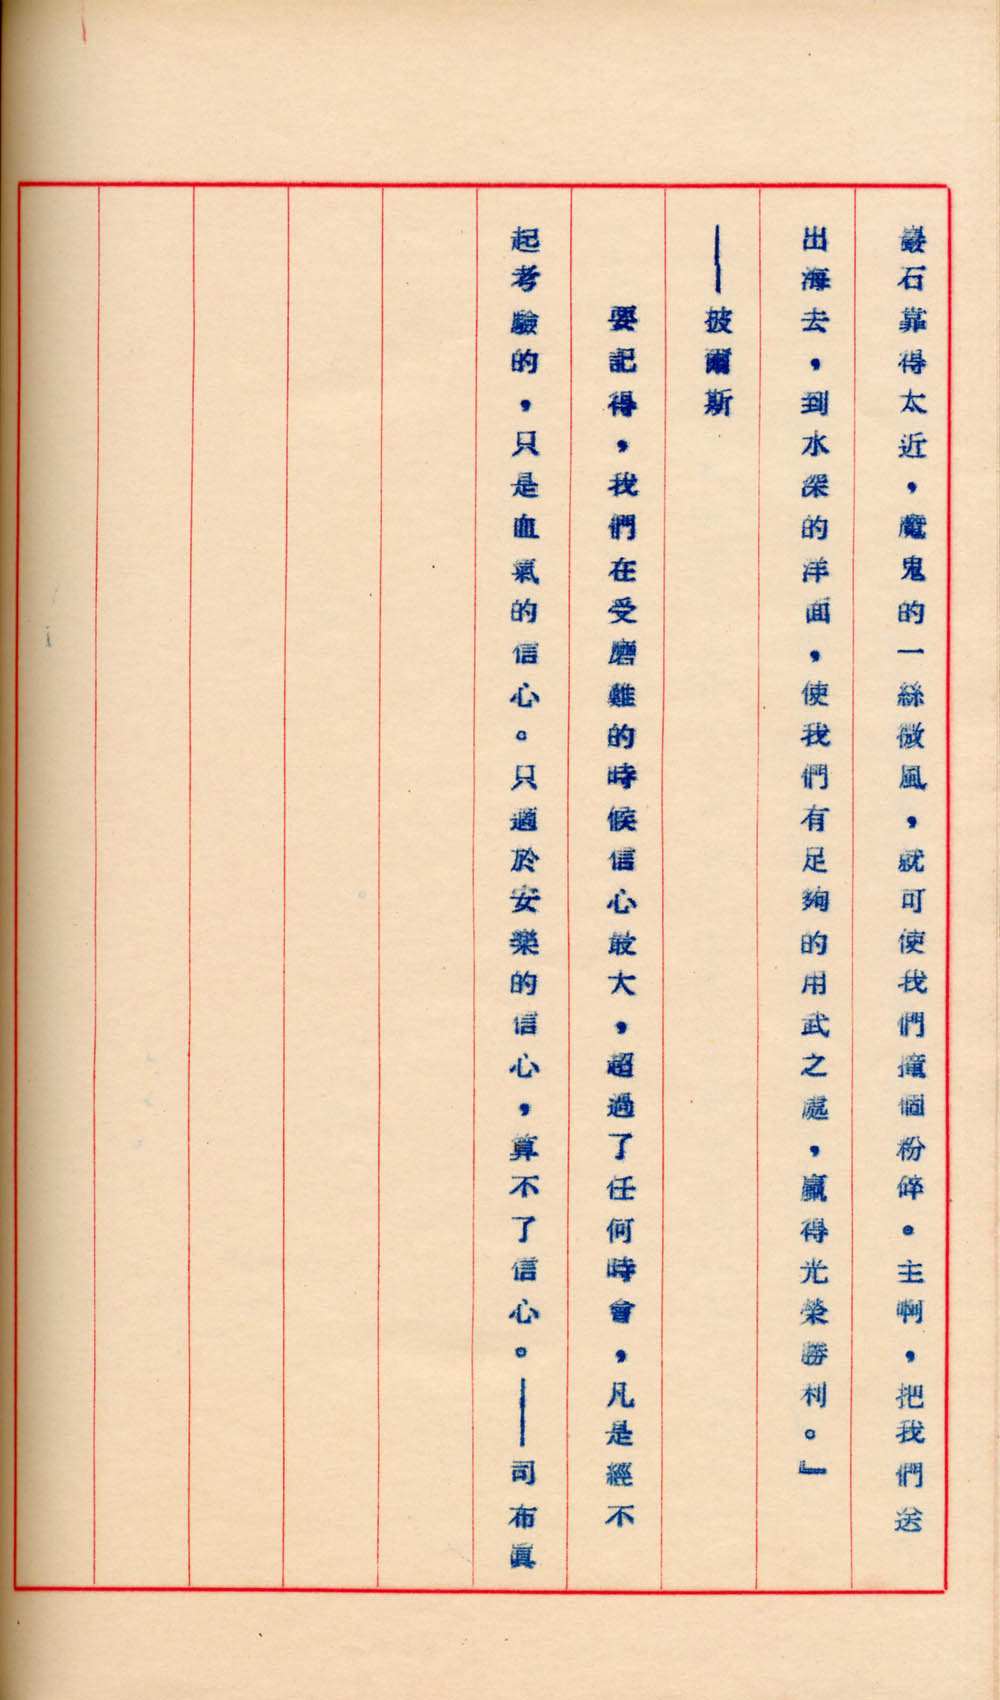 巖石靠得太近，魔鬼的一絲微風，就可使我們撞個粉碎。主啊，把我們送
出海去，到水深的洋面，使我們有足夠的用武之處，贏得光榮勝利。』
——披爾斯
要記得，我們在受磨難的時候信心最大，超過了任何時會，凡是經不
起考驗的，只是血氣的信心。只適於安樂的信心，算不了信心。——司布眞